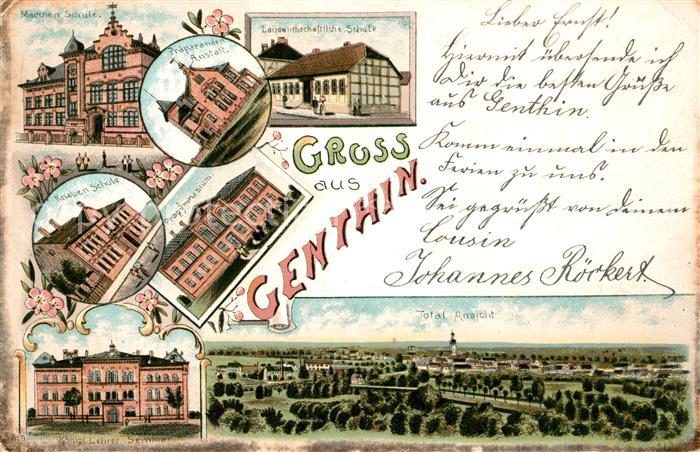 Mädchen Schule.
Präparanden
Anstalt.
Landwirthschaftliche Schule
Knaben Schule
Progymnasium.
GRUSS
aus
GENTHIN.
Lieber Ernst!
Hiermit übersende ich
Dir die besten Grüße
aus Genthin.
Komm einmal in den
Ferien zu uns.
Sei gegrüßt von deinem
Cousin
Johannes Röckert.
Total Ansicht
Königl. Lehrer Seminar